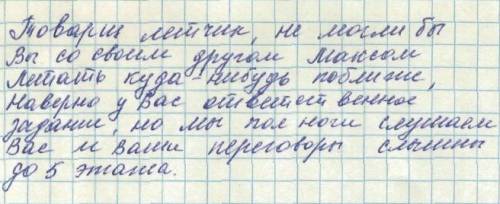 Товарищ летчик, не могли бы
Вы со своим другом Максом
летать куда-нибудь поближе,
Наверно у Вас ответственное
задание, но мы пол ночи слушаем
Вас и Ваши переговоры слышны
до 5 этажа.